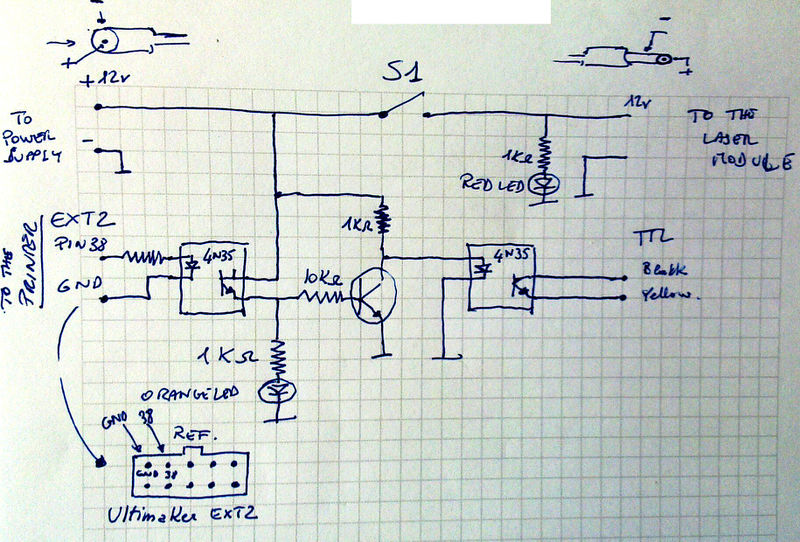 -
+
+12v
S1
-
+
TO
POWER
SUPPLY
-
12v
TO THE
LASER
MODULE
1KΩ
RED LED
1KΩ
TO THE
PRINTER
EXT2
PIN 38
GND
4N35
10KΩ
4N35
TTL
Black
Yellow.
1KΩ
ORANGE LED
GND 38
REF.
GND 38
Ultimaker EXT2